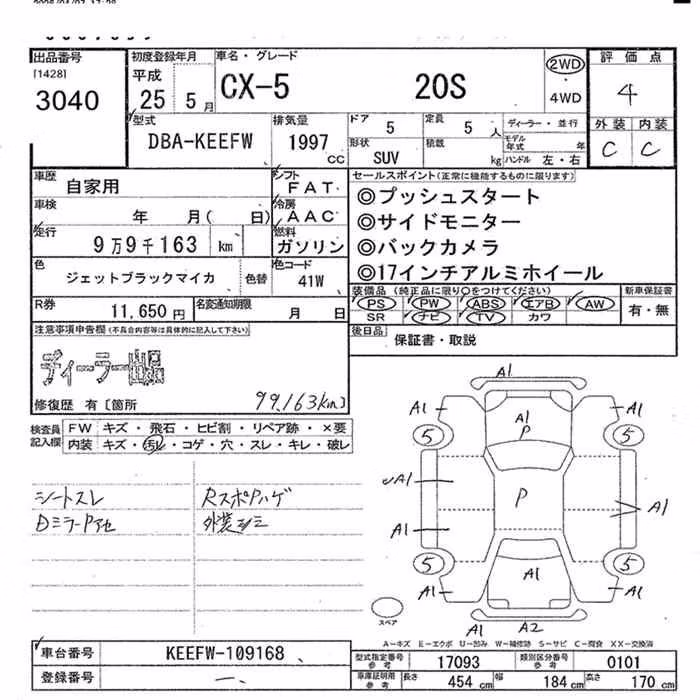 出品番号 初度登録年月 車名・グレード 評価点
[1428] 平成
3040 25 5月 CX-5 20S 2WD ・ 4WD 4
型式 排気量 ドア 5 定員 5 人 ディーラー・並行 外装 内装
DBA-KEEFW 1997 CC 形状 SUV 積載 kg モデル年式 年 ハンドル 左・右 C C
車歴 自家用 シフト FAT セールスポイント(正常に機能するものに限ります)
車検 年 月( 日) 冷房 AAC
◎プッシュスタート
◎サイドモニター
走行 9万9千163 km 燃料 ガソリン
◎バックカメラ
色 ジェットブラックマイカ 色替 色コード 41W
◎17インチアルミホイール
R券 11,650円 名変通知期限 月 日
装備品(純正品に限り○をつけてください) 新車保証書
PS PW ABS エアB AW 有・無
SR ナビ TV カワ
注意事項申告欄(不具合内容等は具体的に記入して下さい) 後日品
保証書・取説
ディーラー
修復歴 有〔箇所 99,163km〕
検査員記入欄 FW キズ・飛石・ヒビ割・リペア跡・×要
内装 キズ・汚レ・コゲ・穴・スレ・キレ・破レ
シートスレ
DミラーPアセ
RスポPハゲ
A1
A1 A1 P A1
5 5
A1 P A1
A1
5 5
A1 A1 A1
A1 A2
スペア
A-キズ E-エクボ U-凹み W-補修跡 S-サビ C-腐食 XX-交換済
車台番号 KEEFW-109168
登録番号 一
型式指定番号 参考 17093 類別区分番号 参考 0101
車庫証明用 参考 長さ 454 cm 幅 184 cm 高さ 170 cm